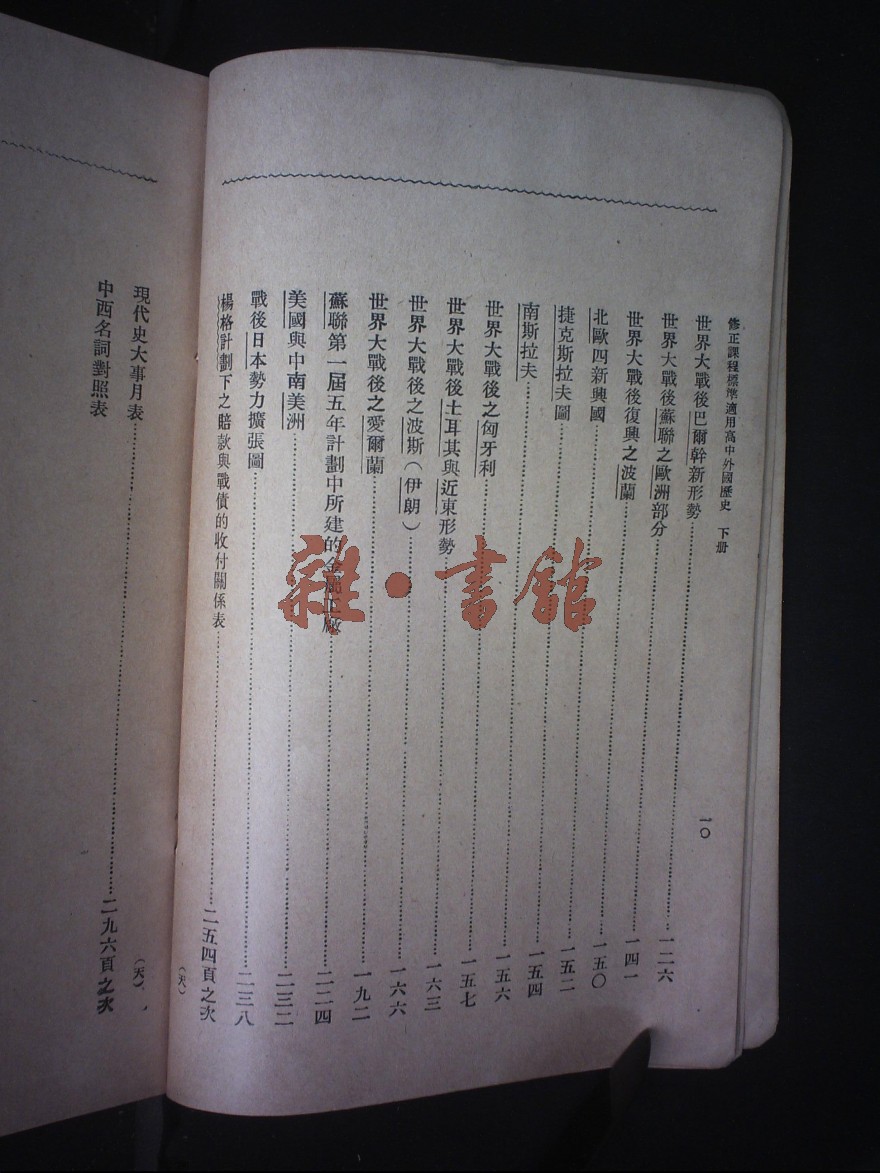 修正課程標準適用高中外國歷史 下册 一〇
世界大戰後巴爾幹新形勢……一二六
世界大戰後蘇聯之歐洲部分……一四一
世界大戰後復興之波蘭……一五〇
北歐四新興國……一五二
捷克斯拉夫圖……一五四
南斯拉夫……一五六
世界大戰後之匈牙利……一五七
世界大戰後土耳其與近東形勢……一六三
世界大戰後之波斯(伊朗)……一六六
世界大戰後之愛爾蘭……一九二
蘇聯第一屆五年計劃中所建的金屬工廠……二二四
美國與中南美洲……二三二
戰後日本勢力擴張圖……二三八
楊格計劃下之賠款與戰債的收付關係表……二五四頁之次
(天)
現代史大事月表……二九六頁之次
(天)
中西名詞對照表
雜·書館